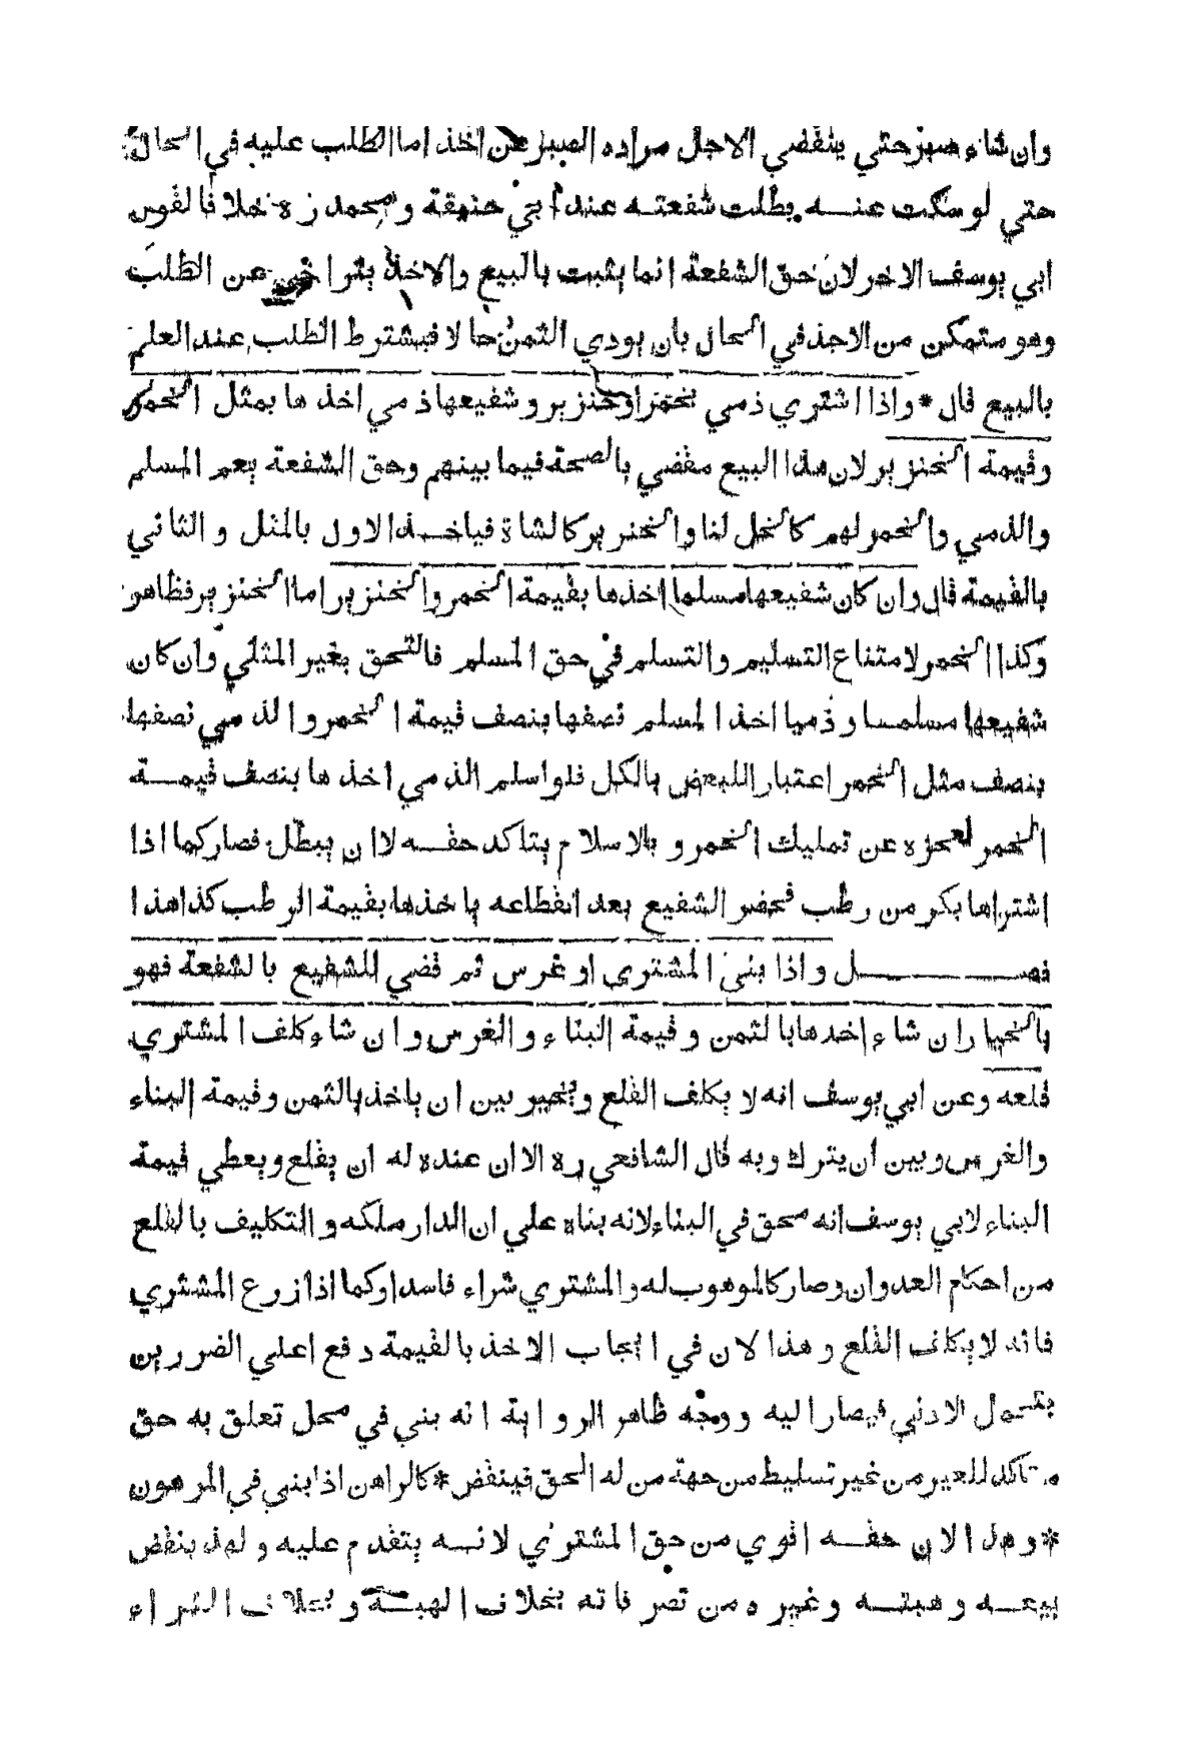 وان شاء صبر حتي ينقضي الاجل مراده الصبر عن اخذ اما الطلب عليه في الحال
حتي لو سكت عنــه بطلت شفعتــه عند ابي حنيفة و محمد ره خلافا لقول
ابي يوسف الاخر لان حق الشفعة انما يثبت بالبيع والاخذ يتراخي عن الطلب
وهو متمكن من الاخذ في الحال بان يودي الثمن حالا فيشترط الطلب عند العلم
بالبيع قال * واذا اشتري ذمي بخمر او خنزير و شفيعها ذمي اخذ ها بمثل الخمر
وقيمة الخنزير لان هذا البيع مقضي بالصحة فيما بينهم وحق الشفعة يعم المسلم
والذمي والخمر لهم كالخل لنا والخنزير كالشاة فياخــذ الاول بالمثل و الثاني
بالقيمة قال وان كان شفيعها مسلما اخذها بقيمة الخمر والخنزير اما الخنزير فظاهر
وكذا الخمر لامتناع التسليم والتسلم في حق المسلم فالتحق بغير المثلي وان كان
شفيعها مسلمــا و ذميا اخذ المسلم نصفها بنصف قيمة الخمر و الذ مي نصفها
بنصف مثل الخمر اعتبارا للبعض بالكل فلو اسلم الذمي اخذ ها بنصف قيمــة
الخمر لعجزه عن تمليك الخمر و بالاسلام يتاكد حقــه لا ان يبطل فصار كما اذا
اشتراها بكر من رطب فحضر الشفيع بعد انقطاعه ياخذها بقيمة الرطب كذا هذا
فصــــــــل و اذا بني المشتري او غرس ثم قضي للشفيع بالشفعة فهو
بالخيار ان شاء اخدها بالثمن و قيمة البناء و الغرس و ان شاء كلف المشتري
قلعه وعن ابي يوسف انه لا يكلف القلع ويخير بين ان ياخذ بالثمن وقيمة البناء
والغرس وبين أن يترك وبه قال الشافعي ره الا ان عنده له ان يقلع ويعطي قيمة
البناء لابي يوسف انه محق في البناء لانه بناه علي ان الدار ملكه و التكليف بالقلع
من احكام العدوان وصار كالموهوب له والمشتري شراء فاسدا وكما اذا زرع المشتري
فانه لا يكلف القلع و هذا لان في ايجاب الاخذ بالقيمة دفع اعلي الضررين
بتحمل الادني فيصار اليه و وجه ظاهر الرواية انه بني في محل تعلق به حق
متاكد للغير من غير تسليط من جهة من له الحق فينقض * كالراهن اذا بني في المرهون
* و هذا لان حقــه اقوي من حق المشتري لانــه يتقدم عليه و لهذ ينقض
بيعــه و هبتــه و غيره من تصرفاته بخلاف الهبــة و بخلاف الشراء